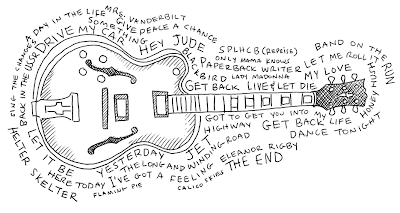 MRS. VANDERBILT
A DAY IN THE LIFE
GIVE PEACE A CHANCE
SOMETHING
SING THE CHANGES
BACK IN THE USSR
DRIVE MY CAR
HEY JUDE
BLACKBIRD
SPLHCB (REPRISE)
ONLY MAMA KNOWS
PAPERBACK WRITER
LADY MADONNA
GET BACK
LIVE & LET DIE
BAND ON THE RUN
LET ME ROLL IT
MY LOVE
HONEY HUSH
GOT TO GET YOU INTO MY LIFE
HIGHWAY
GET BACK
DANCE TONIGHT
JET
YESTERDAY
THE LONG AND WINDING ROAD
ELEANOR RIGBY
I'VE GOT A FEELING
THE END
CALICO SKIES
LET IT BE
HERE TODAY
FLAMING PIE
HELTER SKELTER